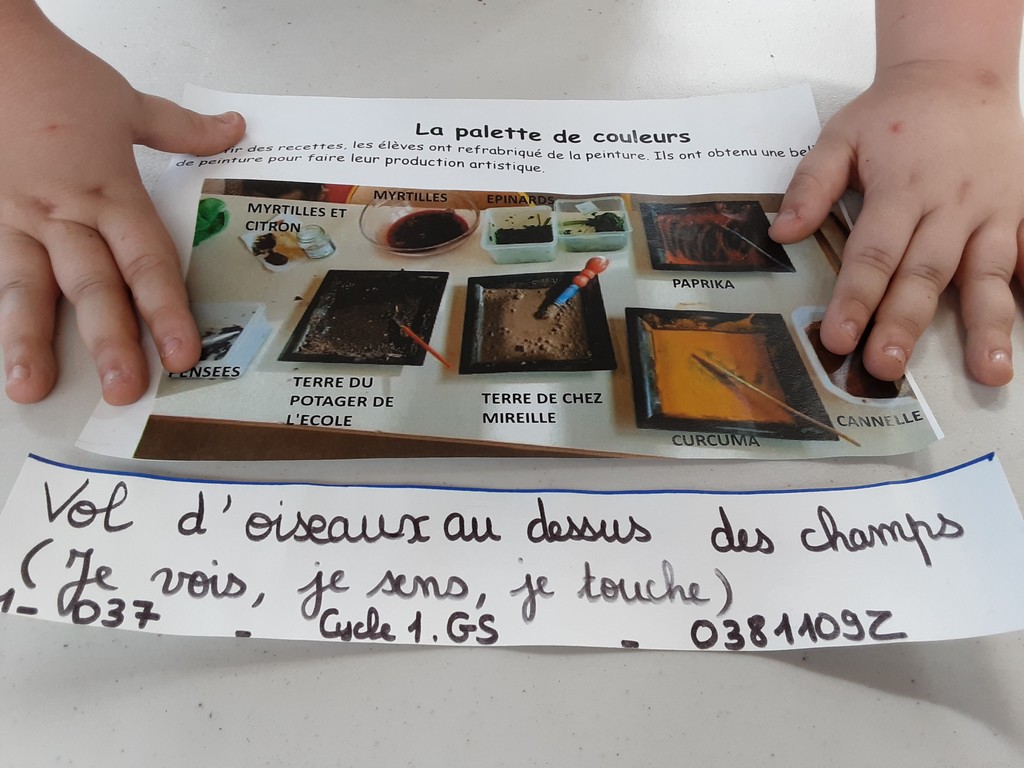 La palette de couleurs
des recettes, les élèves ont refabriqué de la peinture. Ils ont obtenu une
de peinture pour faire leur production artistique.
MYRTILLES ET
CITRON
MYRTILLES
EPINARDS
PAPRIKA
PENSEES
TERRE DU
POTAGER DE
L'ECOLE
TERRE DE CHEZ
MIREILLE
CURCUMA
CANNELLE
Vol d'oiseaux au dessus des champs
(Je vois, je sens, je touche)
1- 037 - Cycle 1. GS - 0381109Z